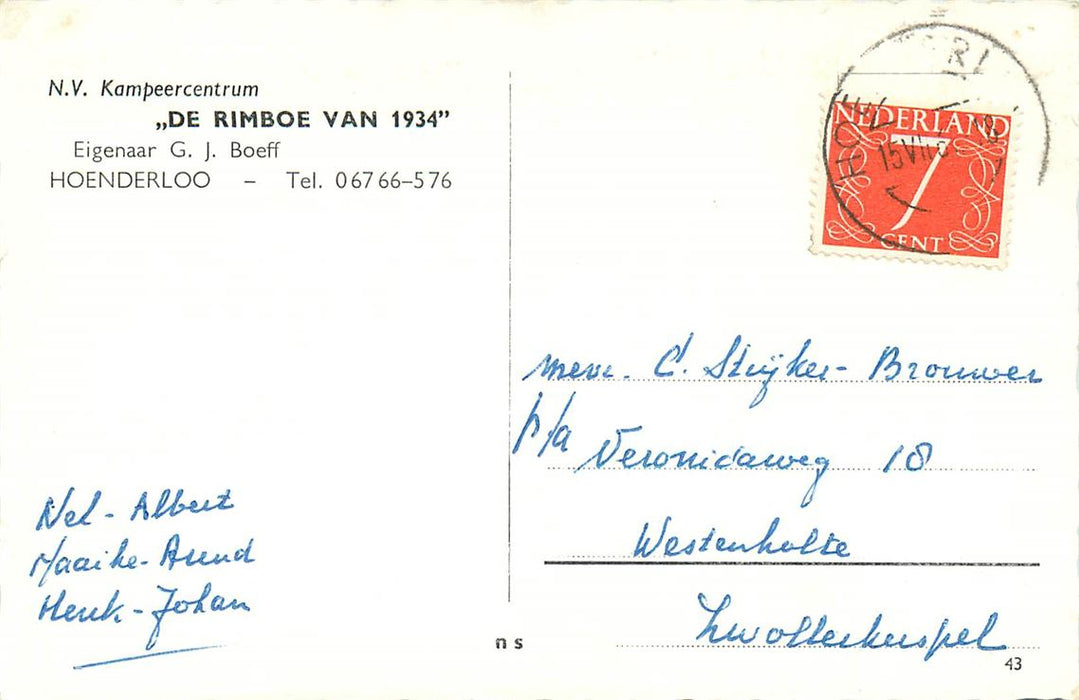 N.V. Kampeercentrum
„DE RIMBOE VAN 1934”
Eigenaar G. J. Boeff
HOENDERLOO – Tel. 06766–576
NEDERLAND
7
CENT
15 VII
mevr. C. Stuijker- Brouwer
p/a Veronicaweg 18
Westenholte
Zwollerkerspel
Nel - Albert
Maaike - Arend
Henk - Johan
n s
43